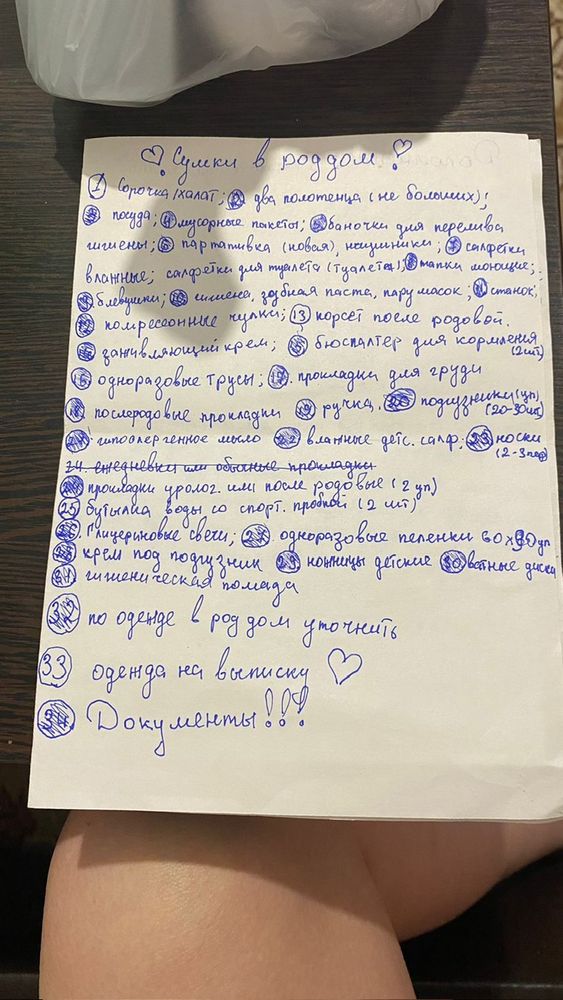 Сумки в роддом!
1 Сорочка/халат; 2 два полотенца (не больших)!
3 посуда; 4 мусорные пакеты; 5 баночки для перелива
гигиены; 6 партативка (новая), наушники; 7 салфетки
влажные; салфетки для туалета (туалета) 8 тапки моющие;
9 блевушки; 10 гигиена, зубная паста, пару масок; 11 станок;
12 компресеонные чулки; 13 корсет после родовой.
14 заживляющий крем; 15 бюспалтер для кормления
(2шт)
16 одноразовые трусы; 17. прокладки для груди
18 послеродовые прокладки 19 ручка. 20 подгузники (уп)
(20-30шт)
21 гипоалергенное мыло 22 влажные детс. салф. 23 носки
(2-3 пар)
24. ежедневки или обычные прокладки
24 прокладки уролог. или после родовые (2 уп)
25 бутылка воды со спорт. пробкой (2 шт)
26 Глицериновые свечи; 27. одноразовые пеленки 60х90 уп
28 крем под подгузник 29 ножницы детские 30 ватные диски
31 гигиеническая помада
32 по одежде в род дом уточнить
33 одежда на выписку
34 Документы!!!